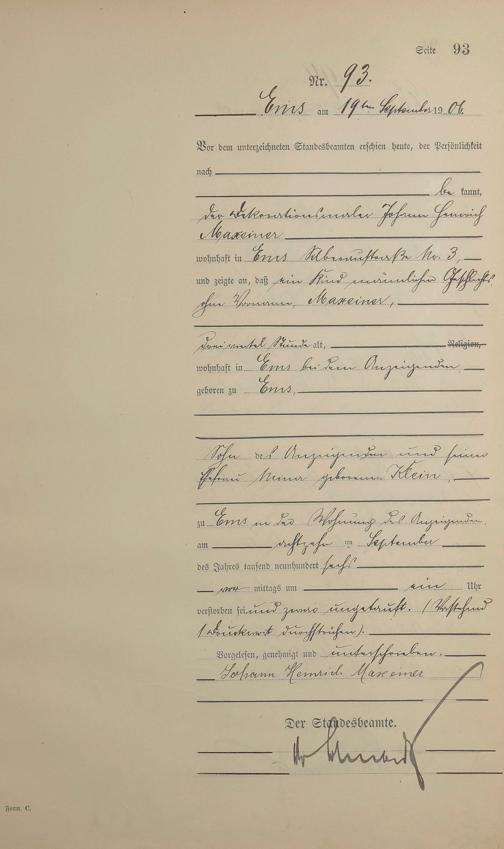 Seite 93
Nr. 93.
Ems am 19ten September 1906.
Vor dem unterzeichneten Standesbeamten erschien heute, der Persönlichkeit
nach
be kannt,
der Dekorationsmaler Johann Heinrich
Maxeiner
wohnhaft in Ems Silberaustraße Nr. 3,
und zeigte an, daß ein Kind männlichen Geschlechts
ohne Vornamen, Maxeiner,
dreiviertel Stunde alt, Religion,
wohnhaft in Ems bei dem Anzeigenden
geboren zu Ems,
Sohn des Anzeigenden und seiner
Ehefrau geborenen Klein,
zu Ems in der Wohnung des Anzeigenden,
am achtzehn ten September
des Jahres tausend neunhundert sechs
vor mittags um ein Uhr
verstorben sei, und zwar ungetauft. (Vorstehend
1 Druckwort durchstrichen).
Vorgelesen, genehmigt und unterschrieben.
Johann Heinrich Maxeiner
Der Standesbeamte.
Form. C.